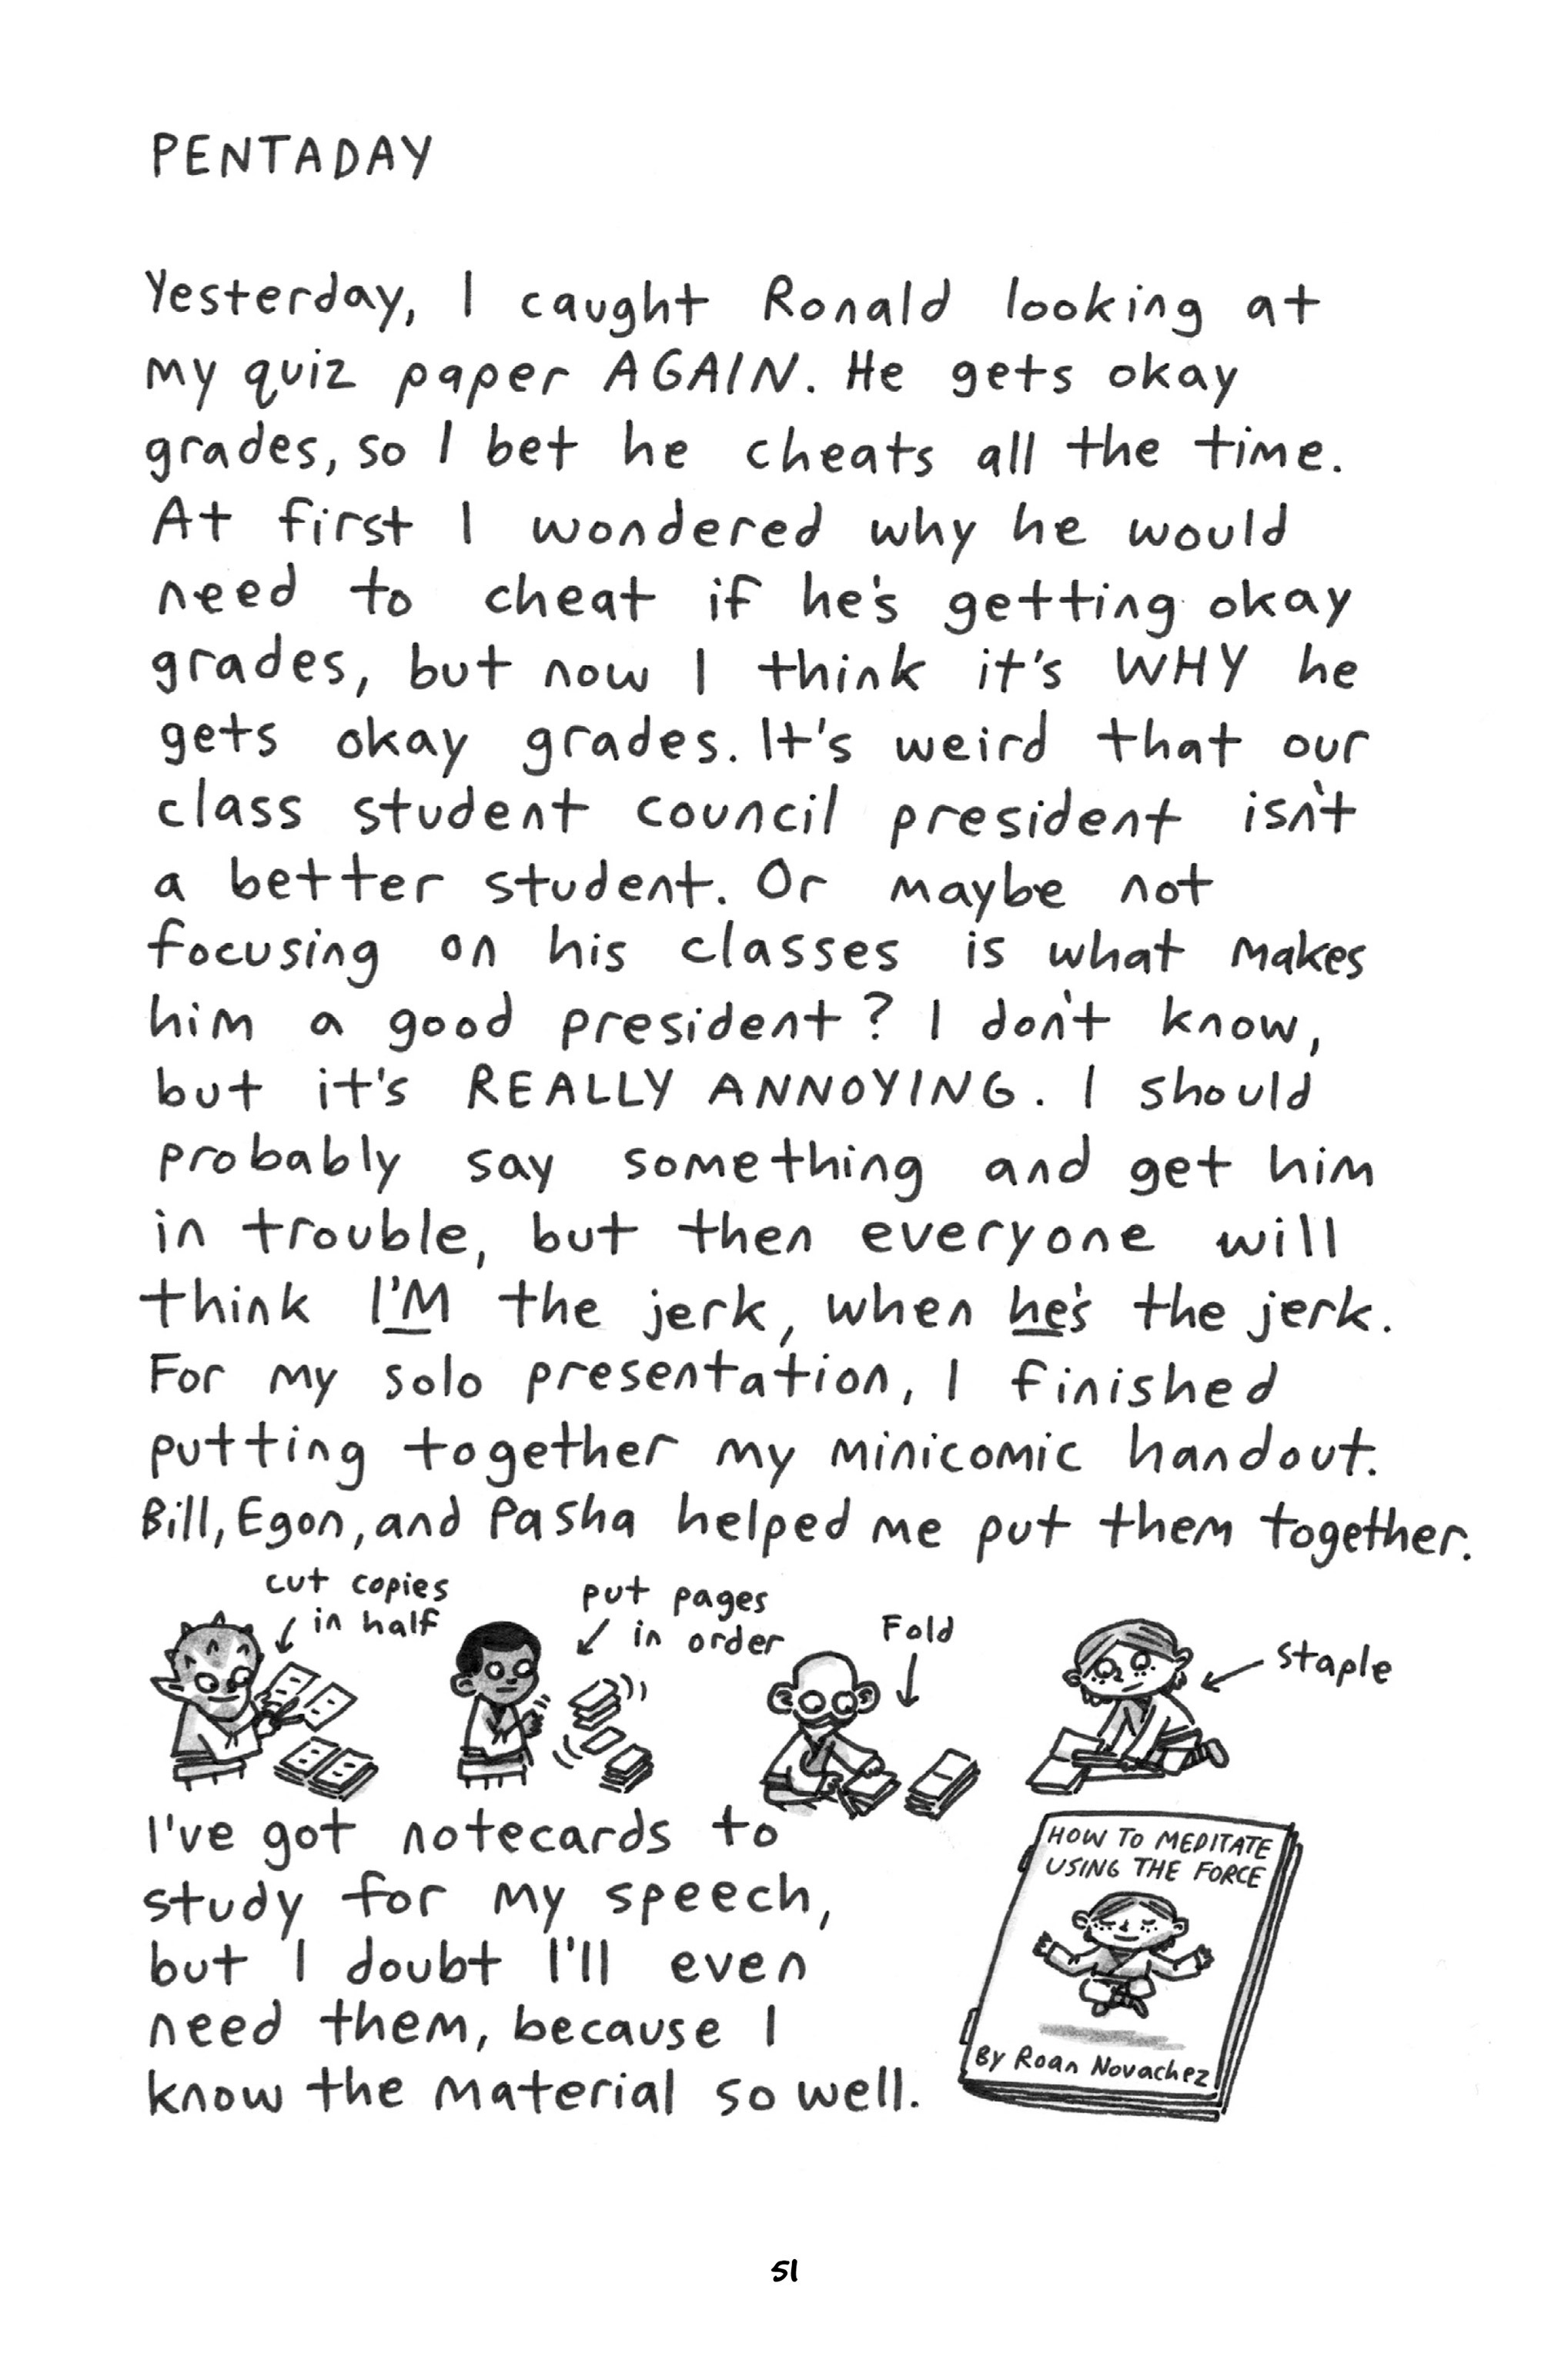 PENTADAY
Yesterday, I caught Ronald looking at
my quiz paper AGAIN. He gets okay
grades, so I bet he cheats all the time.
At first I wondered why he would
need to cheat if he's getting okay
grades, but now I think it's WHY he
gets okay grades. It's weird that our
class student council president isn't
a better student. Or maybe not
focusing on his classes is what makes
him a good president? I don't know,
but it's REALLY ANNOYING. I should
probably say something and get him
in trouble, but then everyone will
think I'M the jerk, when he's the jerk.
For my solo presentation, I finished
putting together my minicomic handout.
Bill, Egon, and Pasha helped me put them together.
cut copies
in half
put pages
in order
Fold
staple
I've got notecards to
study for my speech,
but I doubt I'll even
need them, because I
know the material so well.
HOW TO MEDITATE
USING THE FORCE
By Roan Novachez
51